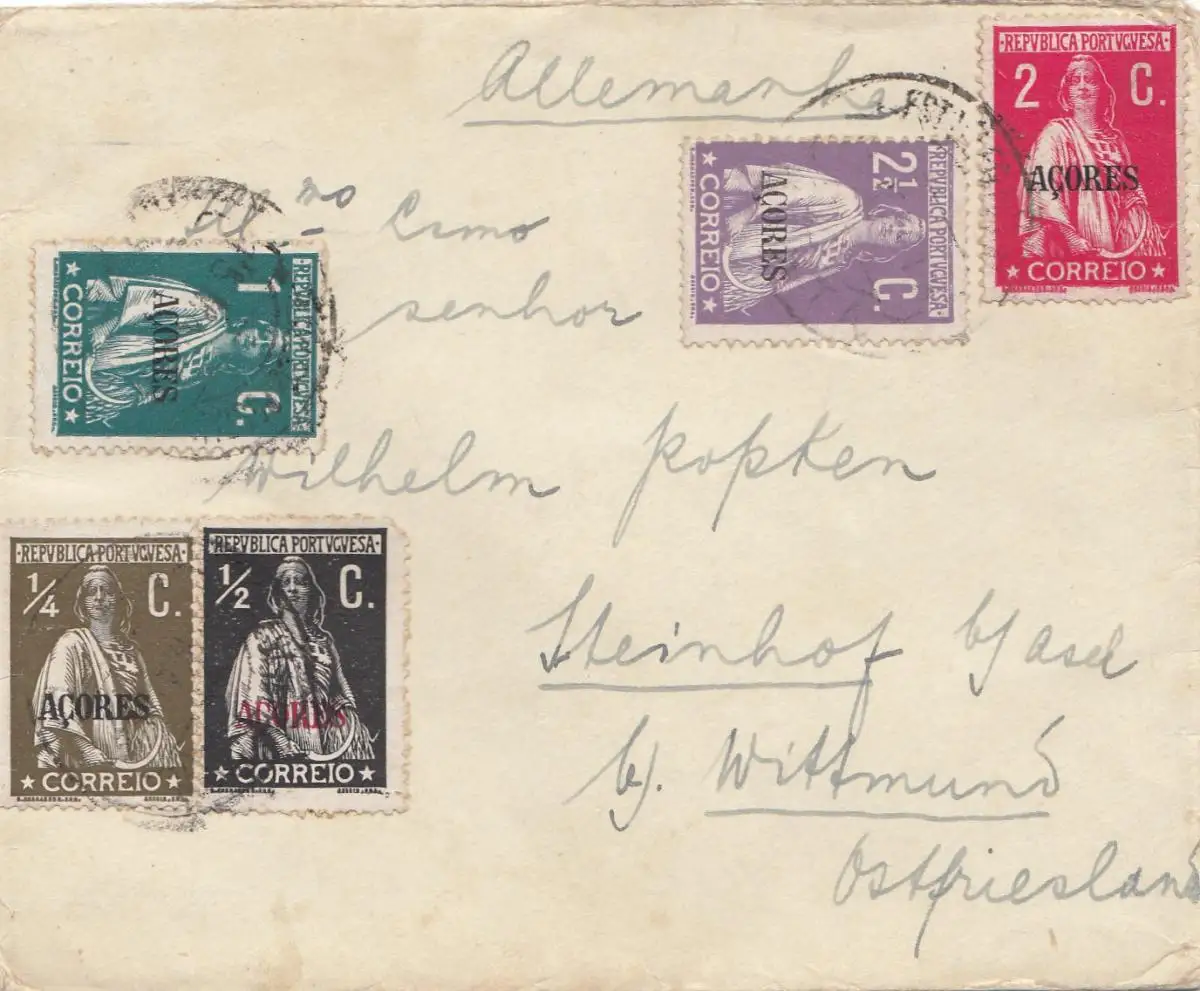 Allemanha
Ill.mo Exmo
senhor
Wilhelm Popken
Steinhof b/ Asel
b/. Wittmund
Ostfriesland
·REPVBLICA PORTVGVESA·
2 C.
AÇORES
CORREIO
REPVBLICA PORTVGVESA
2½ C.
AÇORES
CORREIO
REPVBLICA PORTVGVESA
1 C.
AÇORES
CORREIO
·REPVBLICA PORTVGVESA·
1/4 C.
AÇORES
CORREIO
·REPVBLICA PORTVGVESA·
1/2 C.
AÇORES
CORREIO